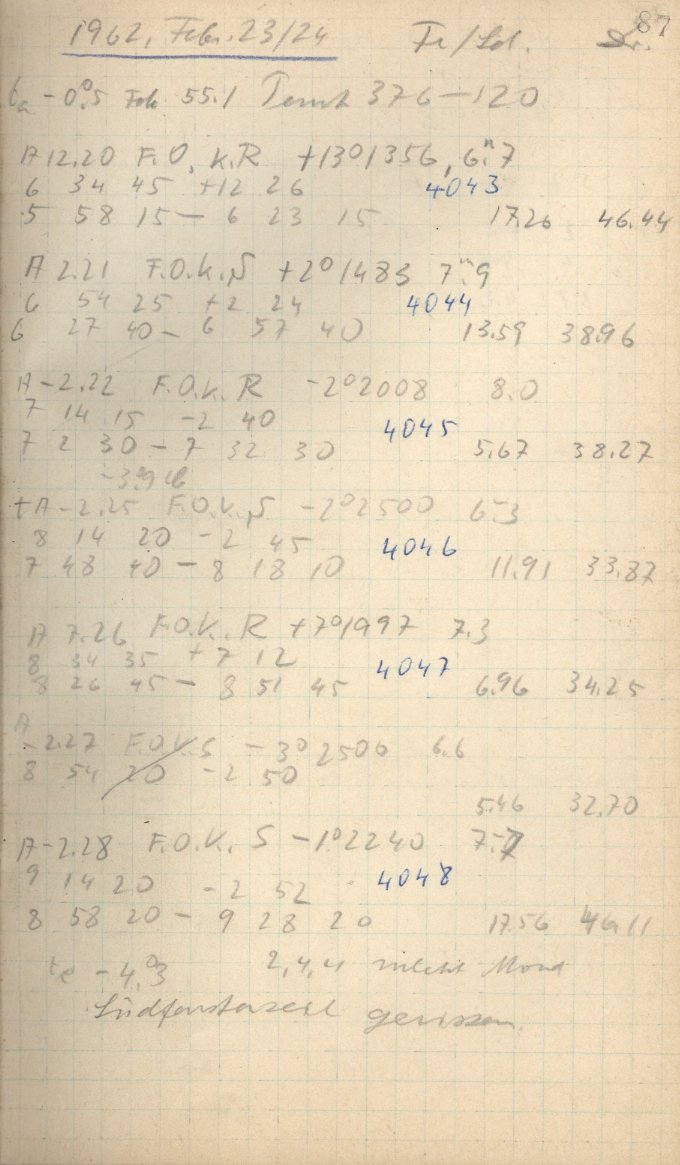 87
1962, Febr. 23/24 Fr/Ld.
ta -0°.5 Fok 55.1 Temp 376-120
A 12.20 F.O.K.R +13°1356, 6m.7
6 34 45 +12 26 4043
5 58 15 - 6 23 15 17.26 46.44
A 2.21 F.O.K.S +2°1483 7m.9
6 54 25 +2 24 4044
6 27 40 - 6 57 40 13.59 38.96
A -2.22 F.O.K.R -2°2008 8.0
7 14 15 -2 40 4045
7 2 30 - 7 32 30 5.67 38.27
-3°
+A -2.25 F.O.K.S -2°2500 6.3
8 14 20 -2 45 4046
7 48 40 - 8 18 10 11.91 33.87
A 7.26 F.O.K.R +7°1997 7.3
8 34 35 +7 12 4047
8 26 45 - 8 51 45 6.96 34.25
A
-2.27 F.O.K.S -3°2506 6.6
8 54 20 -2 50
5.46 32.70
A -2.28 F.O.K.S -1°2240 7.7
9 14 20 -2 52 4048
8 58 20 - 9 28 20 17.56 46.11
te -4°.3 2,4,4 zuletzt Mond
Südfensterseil gerissen.